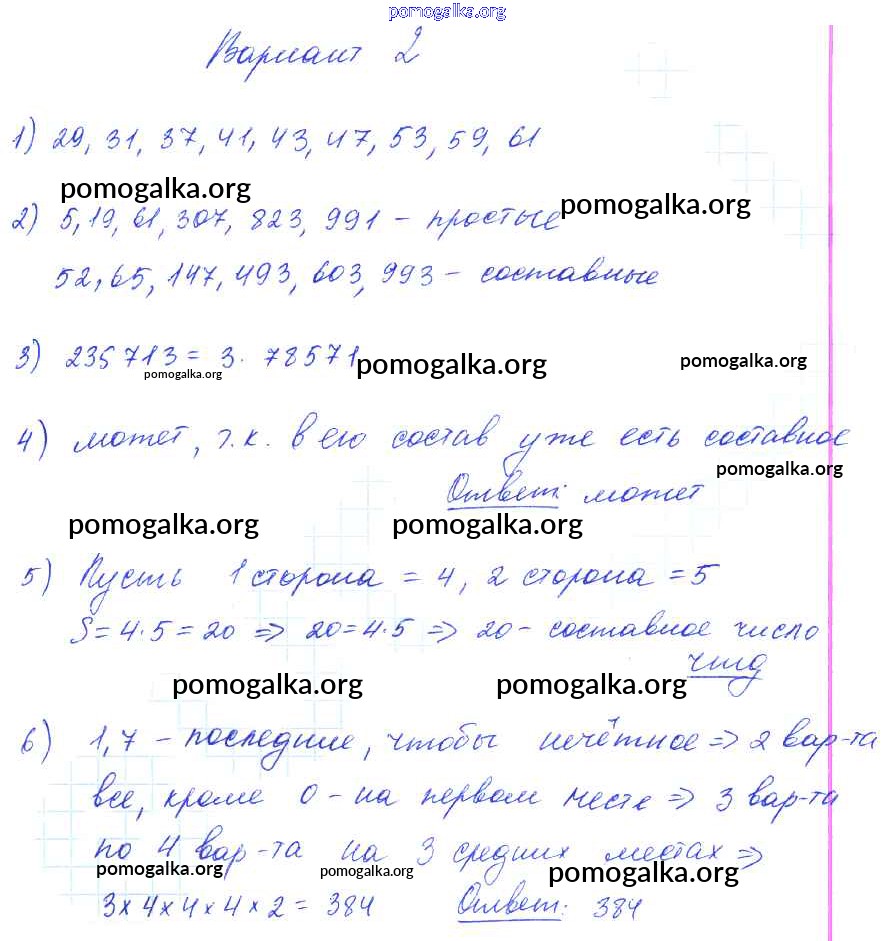 pomogalka.org
Вариант 2
1) 29, 31, 37, 41, 43, 47, 53, 59, 61
pomogalka.org
pomogalka.org
2) 5, 19, 61, 307, 823, 991 – простые
52, 65, 147, 493, 603, 993 – составные
3) 235713 = 3 · 78571
pomogalka.org
pomogalka.org
pomogalka.org
4) может, т.к. в его состав уже есть составное
pomogalka.org
Ответ: может
pomogalka.org
pomogalka.org
5) Пусть 1 сторона = 4, 2 сторона = 5
S = 4·5 = 20 => 20 = 4·5 => 20 – составное число
чтд
pomogalka.org
pomogalka.org
6) 1, 7 – последние, чтобы нечётное => 2 вар-та
все, кроме 0 – на первом месте => 3 вар-та
по 4 вар-та на 3 средних местах =>
pomogalka.org
pomogalka.org
pomogalka.org
3 × 4 × 4 × 4 × 2 = 384 Ответ: 384